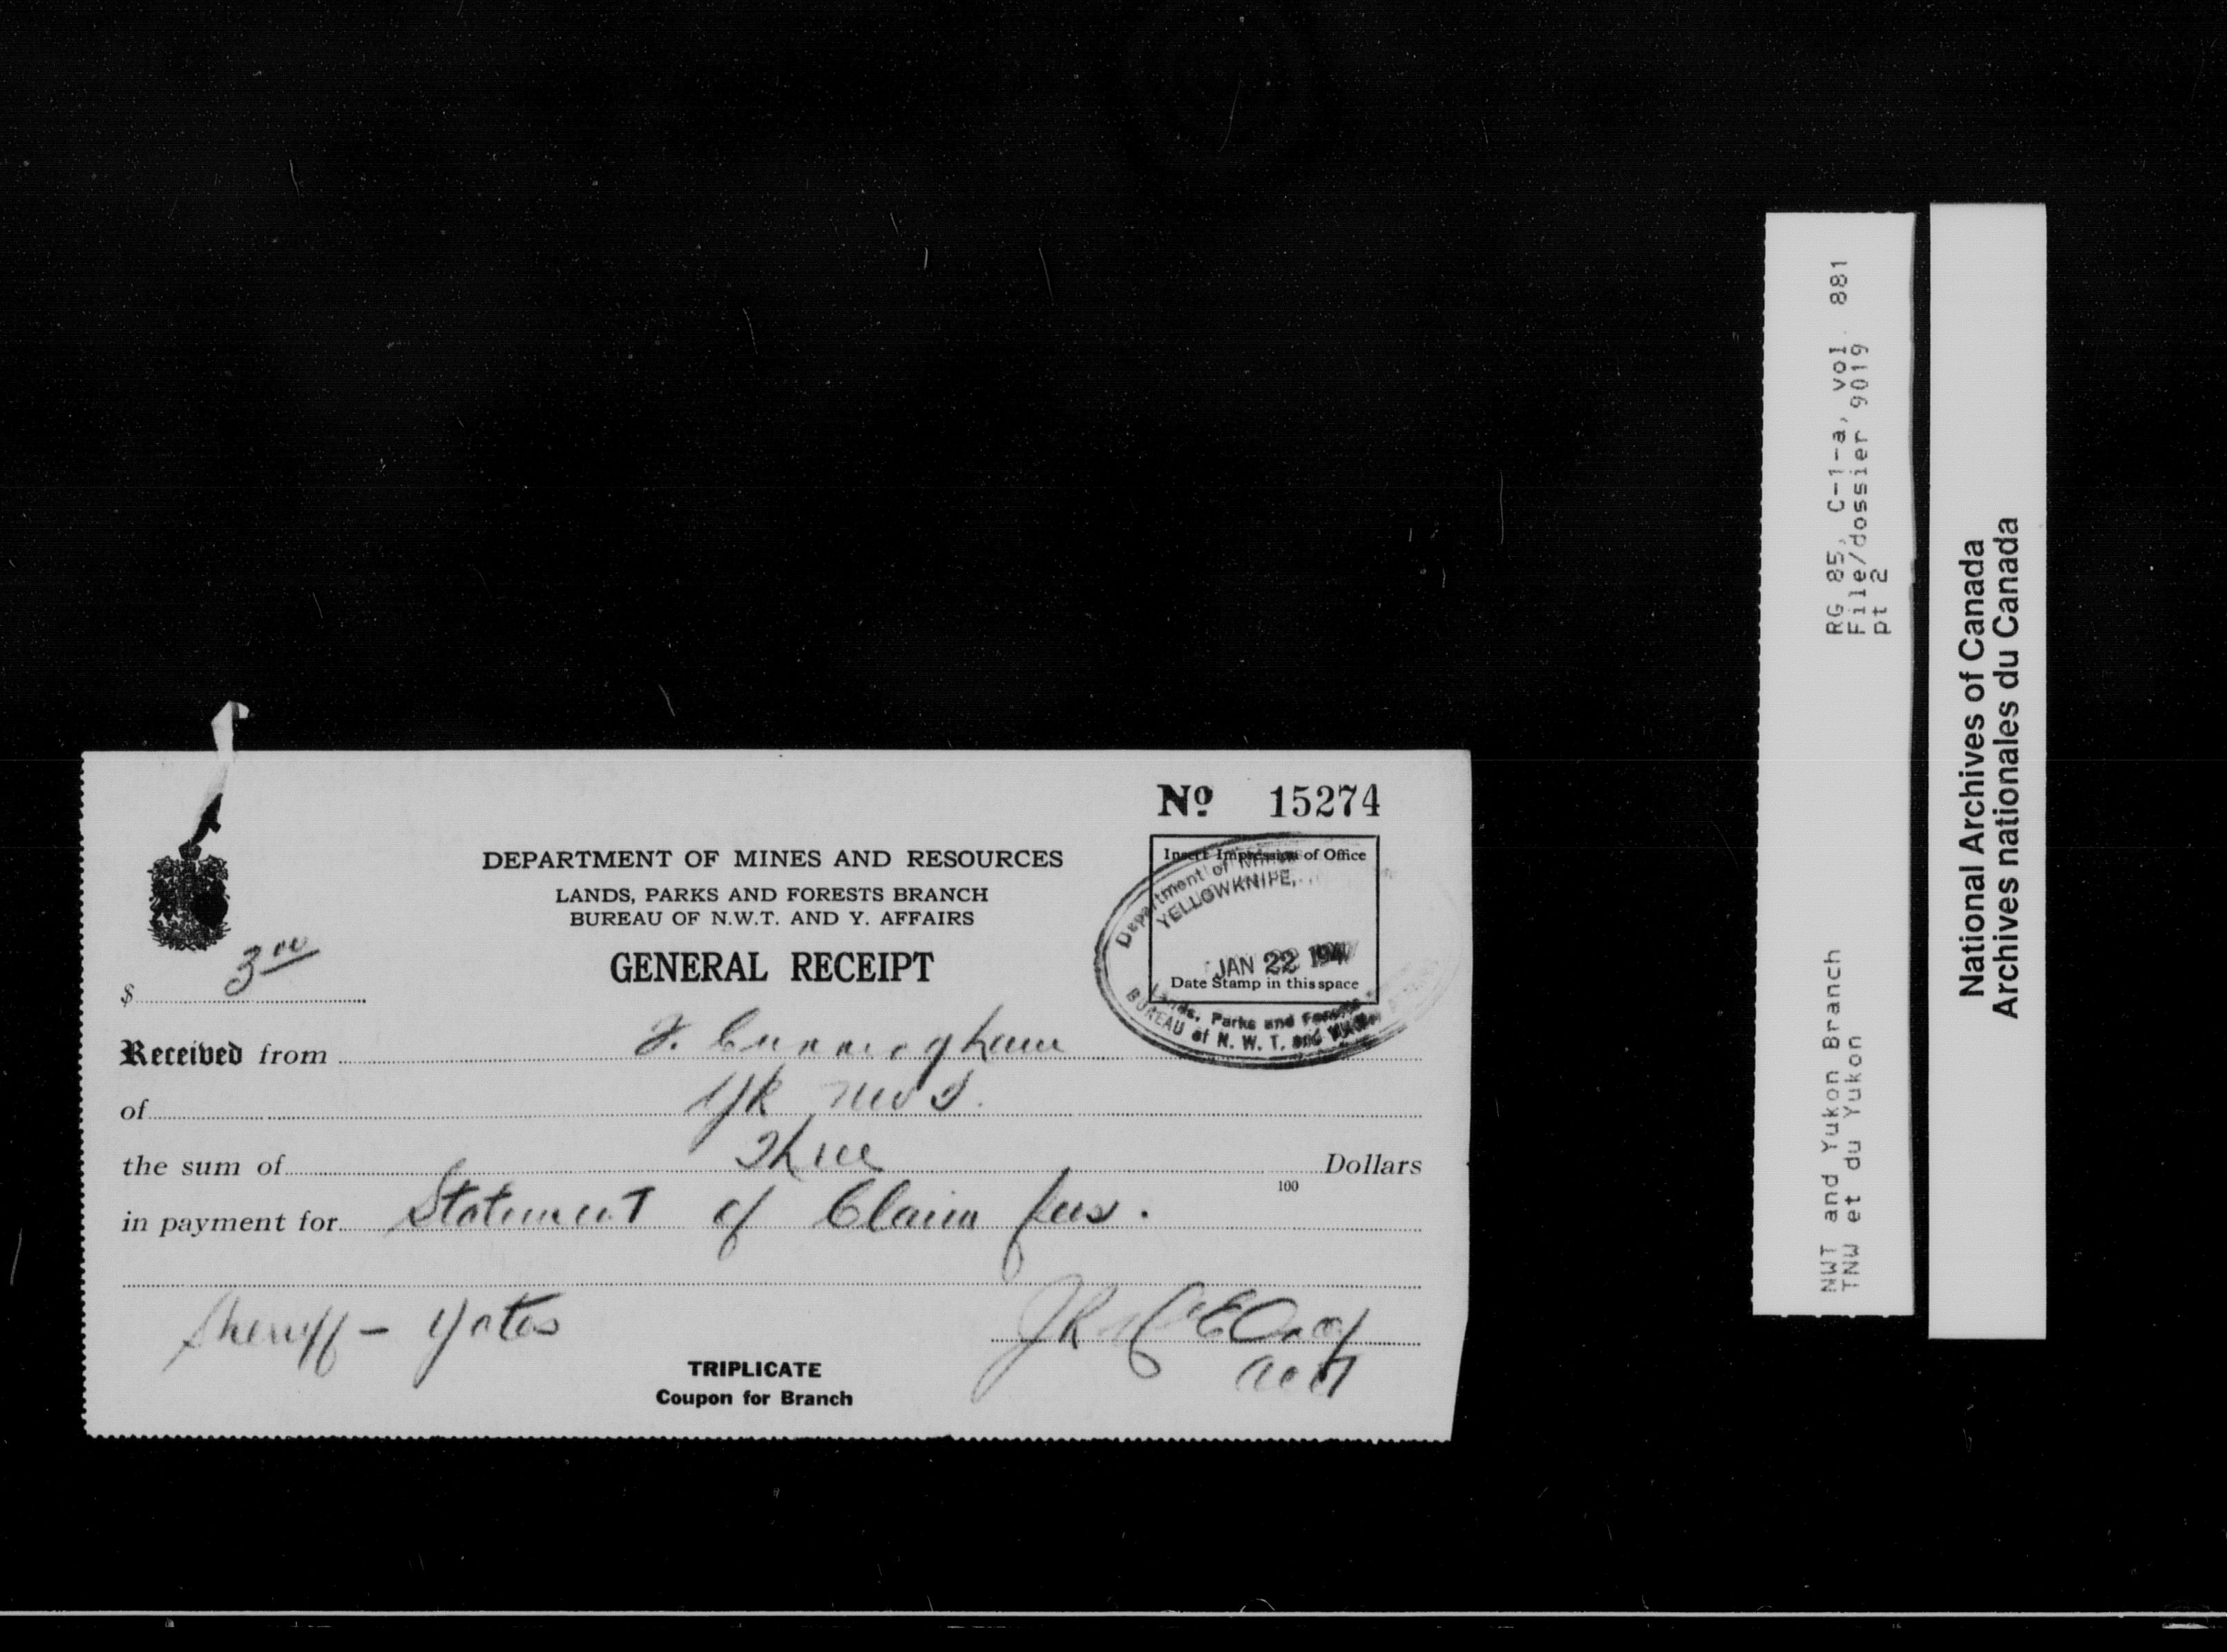 Nº 15274
DEPARTMENT OF MINES AND RESOURCES
LANDS, PARKS AND FORESTS BRANCH
BUREAU OF N.W.T. AND Y. AFFAIRS
GENERAL RECEIPT
Insert Impression of Office
Date Stamp in this space
Department of Mines
YELLOWKNIFE,
JAN 22 194
Lands, Parks and Forests
BUREAU of N. W. T. and
$ 3 00
Received from J. Cunningham
of YK NWT.
the sum of Three Dollars
100
in payment for Statement of Claim fees.
Sheriff - Yates
Act
TRIPLICATE
Coupon for Branch
NWT and Yukon Branch RG 85, C-1-a, vol. 881
TNW et du Yukon File/dossier 9019
pt 2
National Archives of Canada
Archives nationales du Canada